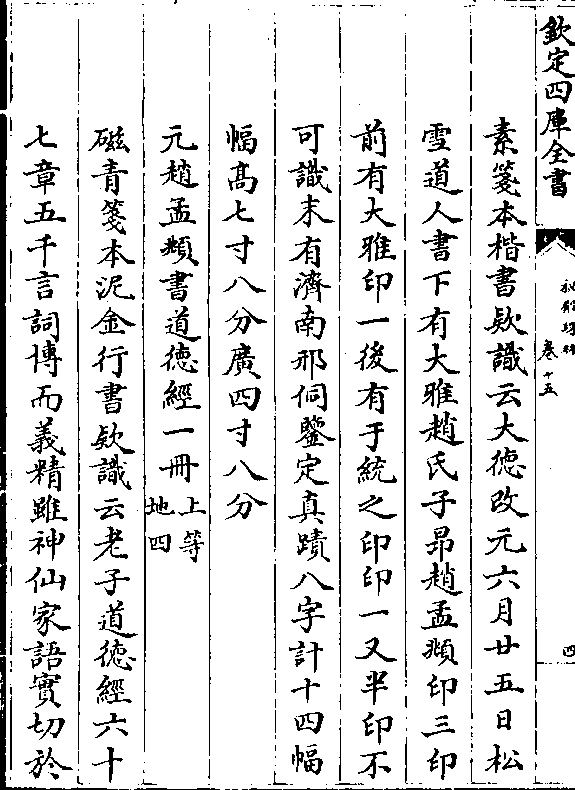 欽定四庫全書
祕殿珠林
卷十五
四
素箋本楷書欵識云大徳改元六月廿五日松
雪道人書下有大雅趙氏子昂趙孟頫印三印
前有大雅印一後有于統之印印一又半印不
可識末有濟南邢侗鑒定真蹟八字計十四幅
幅髙七寸八分廣四寸八分
元趙孟頫書道徳經一冊上等
地四
磁青箋本泥金行書欵識云老子道徳經六十
七章五千言詞博而義精雖神仙家語實切於